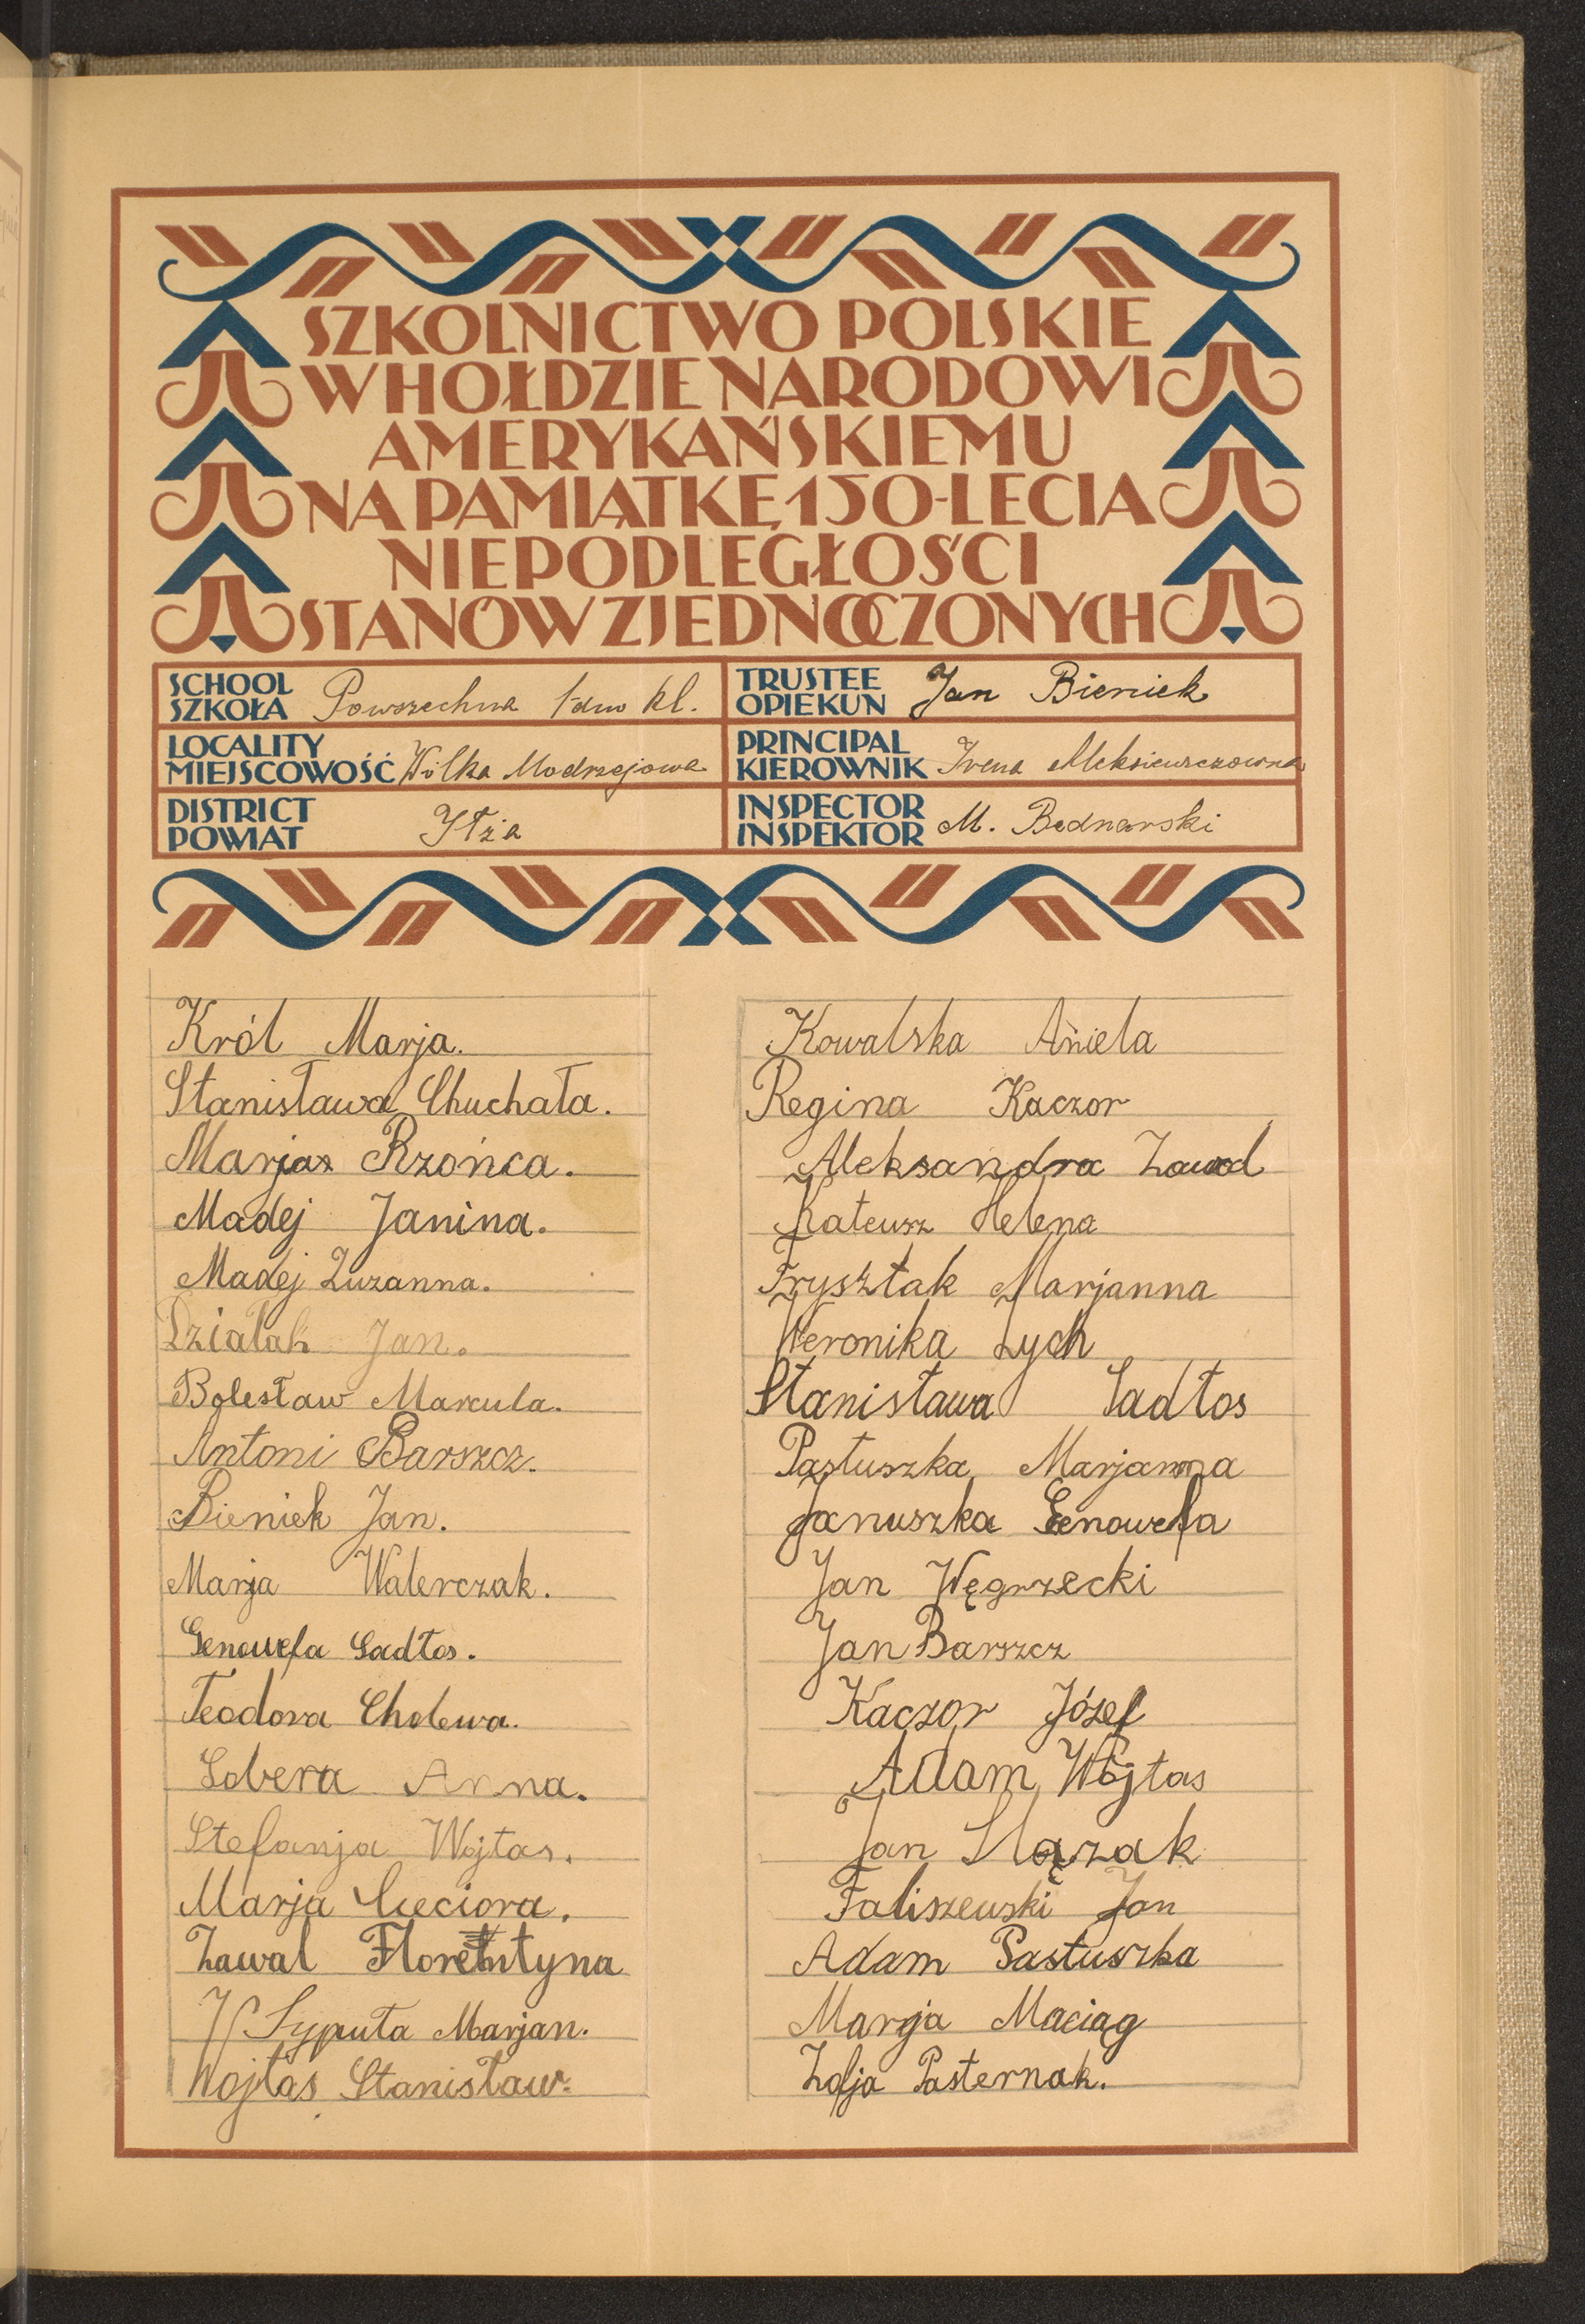 SZKOLNICTWO POLSKIE
W HOŁDZIE NARODOWI
AMERYKAŃSKIEMU
NA PAMIĄTKĘ 150-LECIA
NIEPODLEGŁOŚCI
STANÓW ZJEDNOCZONYCH
SCHOOL
SZKOŁA Powszechna 1-dno kl.
LOCALITY
MIEJSCOWOŚĆ Wólka Modrzejowa
DISTRICT
POWIAT Iłża
TRUSTEE
OPIEKUN Jan Bieniek
PRINCIPAL
KIEROWNIK Irena
INSPECTOR
INSPEKTOR M. Bednarski
Król Marja.
Stanisława Chuchała.
Marja Rzońca.
Madej Janina.
Madej Zuzanna.
Działak Jan.
Bolesław Marcula.
Antoni Barszcz.
Bieniek Jan.
Marja Walerczak.
Genowefa Sadłos.
Teodora Cholewa.
Sobera Anna.
Stefanja Wojtas.
Marja Cieciora.
Zawal Florentyna
Syputa Marjan.
Wojtas Stanisław.
Kowalska Aniela
Regina Kaczor
Aleksandra Zawod
Rateusz Helena
Frysztak Marjanna
Weronika Łych
Stanisława Sadłos
Pastuszka Marjanna
Januszka Genowefa
Jan Węgrzecki
Jan Barszcz
Kaczor Józef
Adam Wójtas
Jan Ślązak
Faliszewski Jan
Adam Pastuszka
Marja Maciąg
Zofja Pasternak.